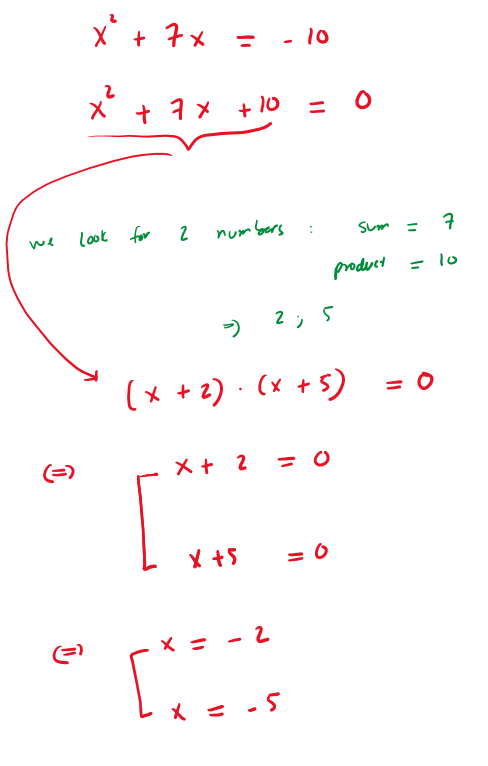 x² + 7x = -10
x² + 7x + 10 = 0
we look for 2 numbers : sum = 7
product = 10
=) 2 ; 5
(x + 2) · (x + 5) = 0
(=) x + 2 = 0
x + 5 = 0
(=) x = -2
x = -5